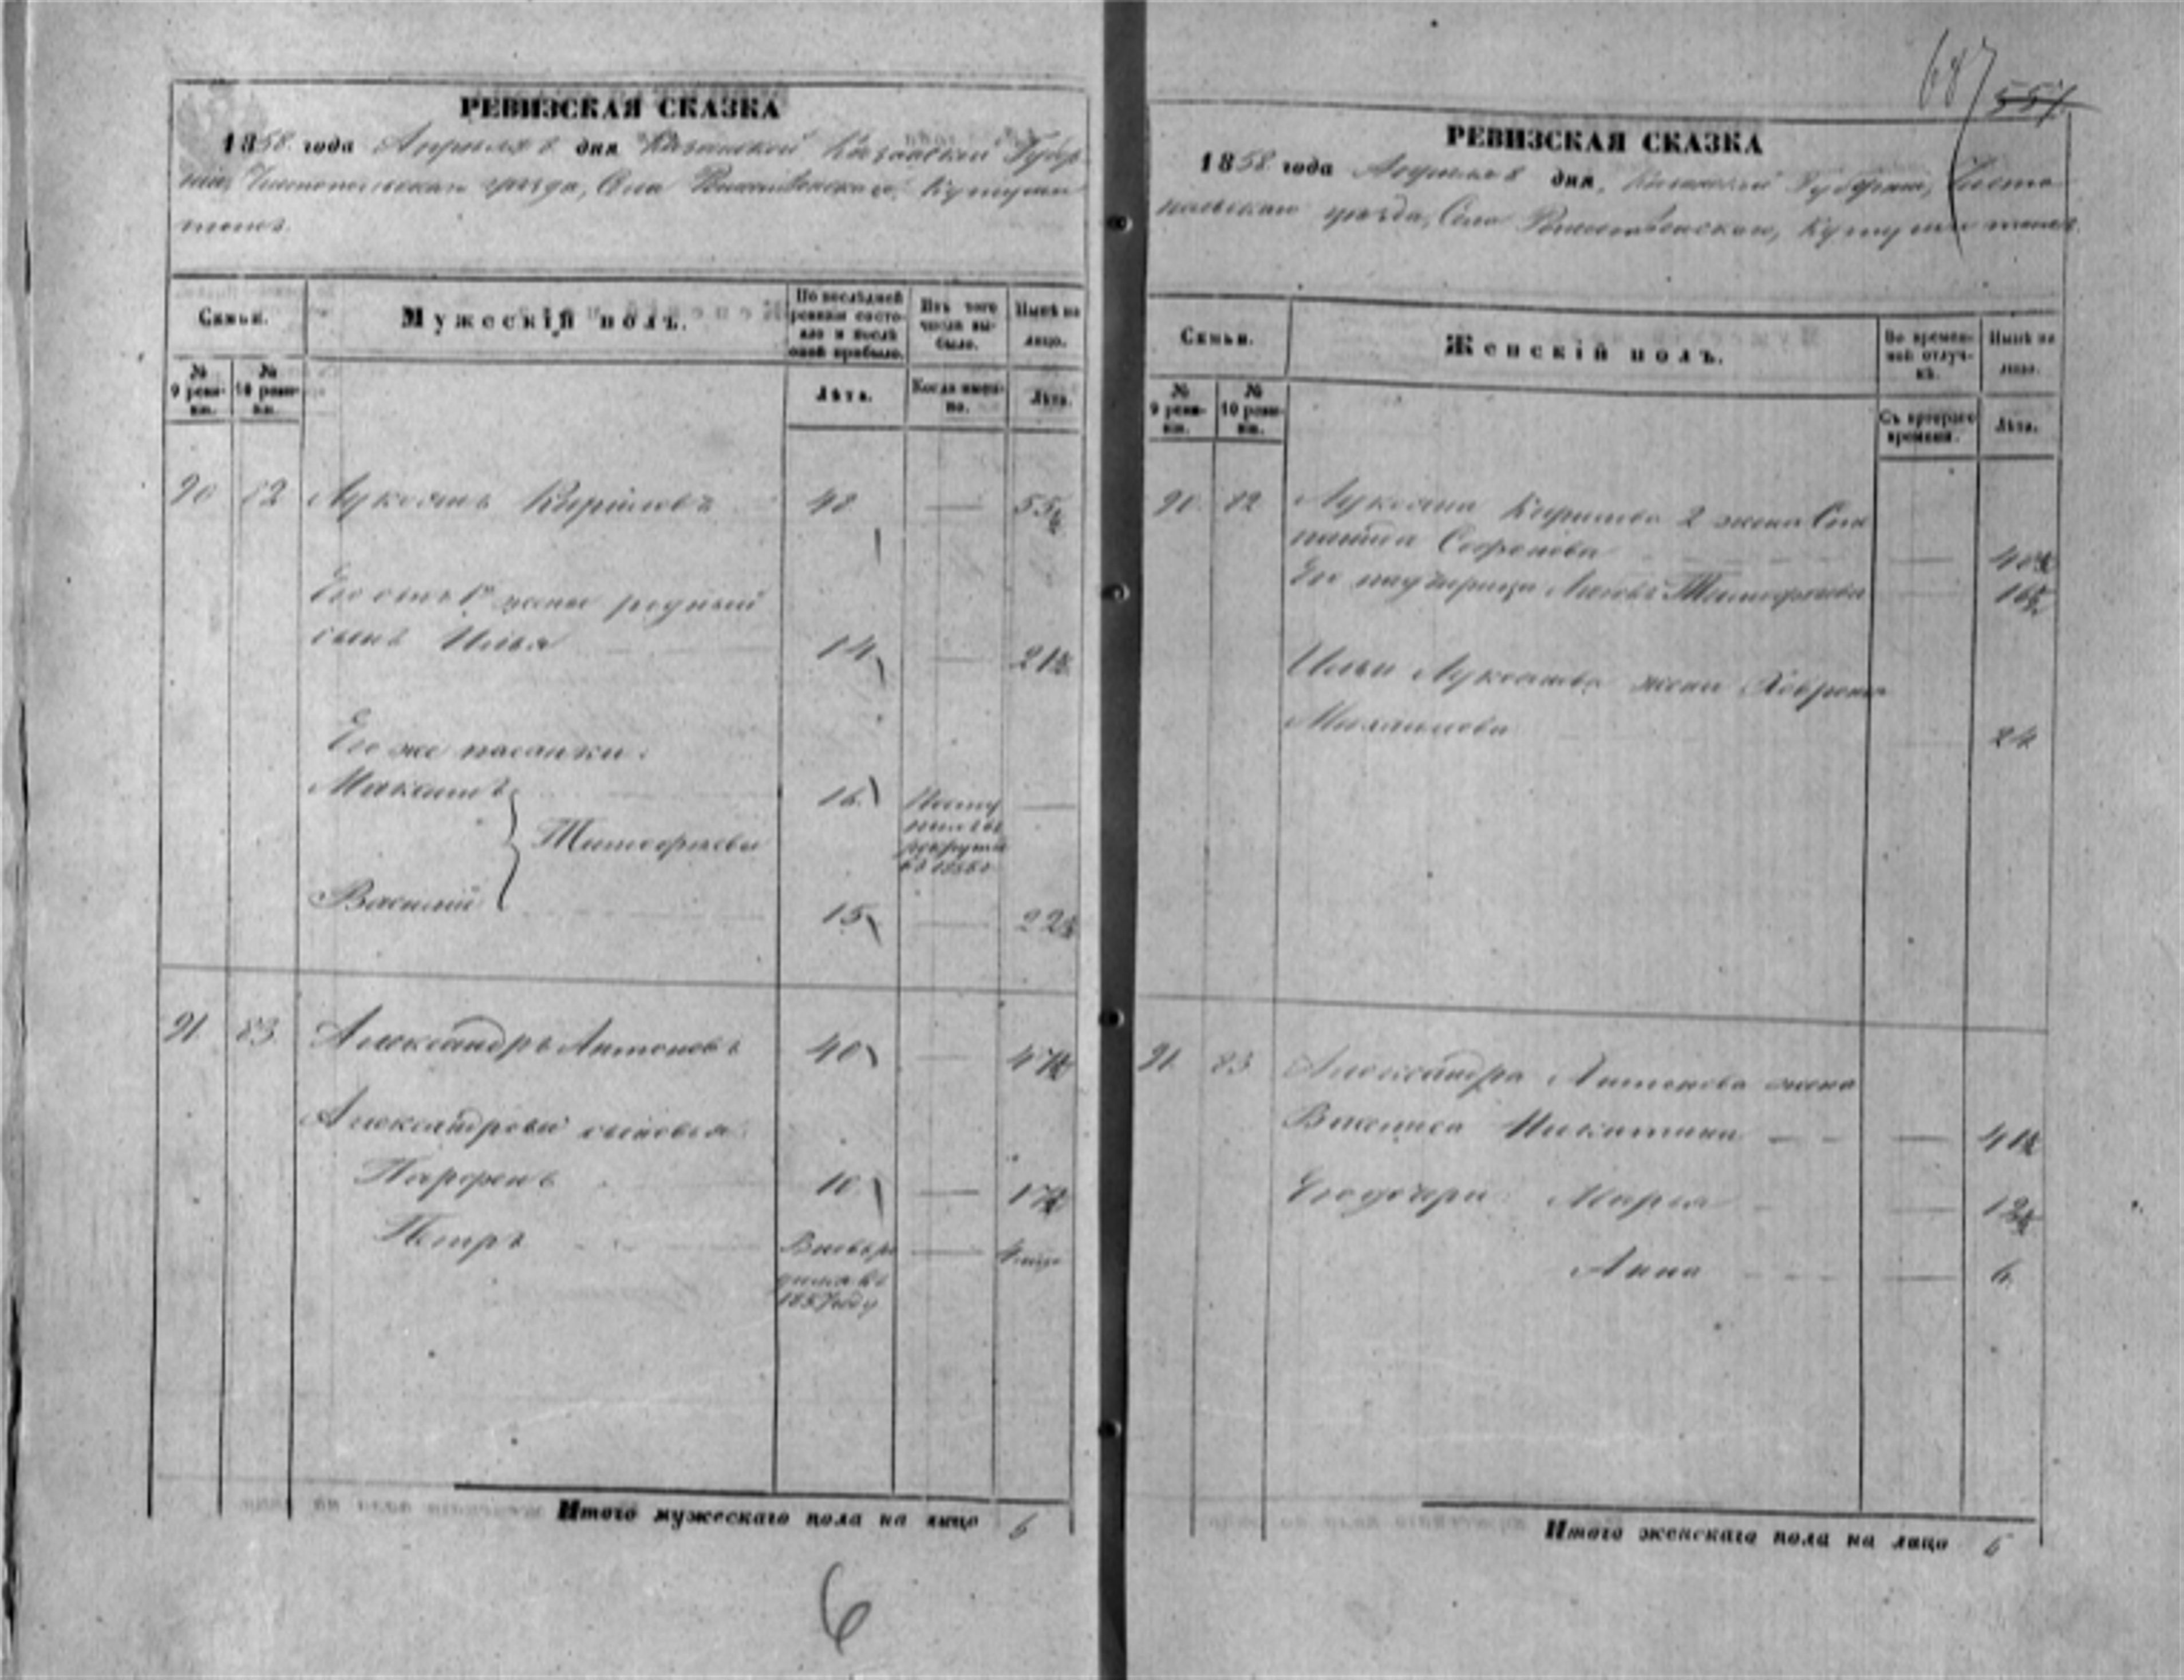 687
551
РЕВИЗСКАЯ СКАЗКА
1858 года Апреля 8 дня Казанской Губер
ніи, Чистопольскаго уезда, Села Рождественскаго, Кутуш
тожъ.
Семьи.
Мужескій полъ.
По послѣдней ревизіи состо-
яло и послѣ оной прибыло.
Изъ того числа вы-
было.
Нынѣ на лицо.
№ 9 реви-
зіи.
№ 10 реви-
зіи.
Лѣта.
Когда имен-
но.
Лѣта.
90 82 Лукоянъ Кириловъ 48 — 55½
Его отъ 1й жены родный
сынъ Илья 14 — 21½
Его же пасынки:
Максимъ 16 Посту
пилъ въ
рекруты
въ
—
Тимофеевы
Василий 15 — 22½
91. 83. Александръ Антоновъ 40 — 47½
Александровы сыновья
Парфенъ 10 — 17½
Петръ Вновь ро
дился въ
1857 году
—
Итого мужескаго пола на лицо 6
6
РЕВИЗСКАЯ СКАЗКА
1858 года Апреля 8 дня, Казанской Губернии, Чисто
польскаго уезда, Села Рождественскаго, тожъ.
Семьи.
Женскій полъ.
Во времен-
ной отлуч-
кѣ.
Нынѣ на лицо.
№ 9 реви-
зіи.
№ 10 реви-
зіи.
Съ котораго времени.
Лѣта.
90. 82 Лукояна Кирилова 2 жена
Софронова —
Его падчерица Тимофеева — 16½
Ильи Лукоянова жена Хавронья
Михайлова — 24
91. 83 Александра Антонова жена
Василиса Никитина — 41½
Его дочери: Марья —
Анна — 6.
Итого женскаго пола на лицо 6